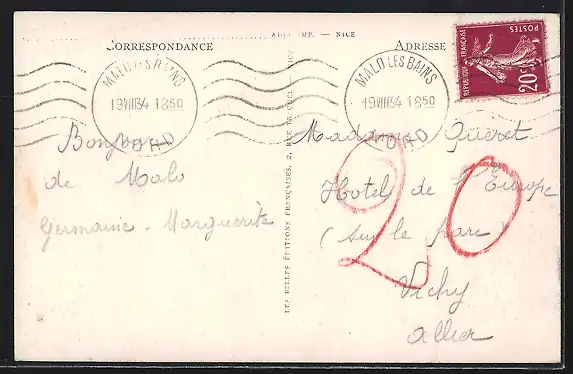 IMP. — NICE
CORRESPONDANCE
ADRESSE
MALO LES BAINS
19 VIII 34 18 50
NORD
MALO LES BAINS
19 VIII 34 18 50
NORD
REPUBLIQUE FRANÇAISE
POSTES
20 c
Bonjour
de Malo
Germaine - Marguerite
Madame Queret
Hotel de l'Europe
(sur le parc)
Vichy
Allier
20
LES BELLES ÉDITIONS FRANÇAISES, 2, RUE